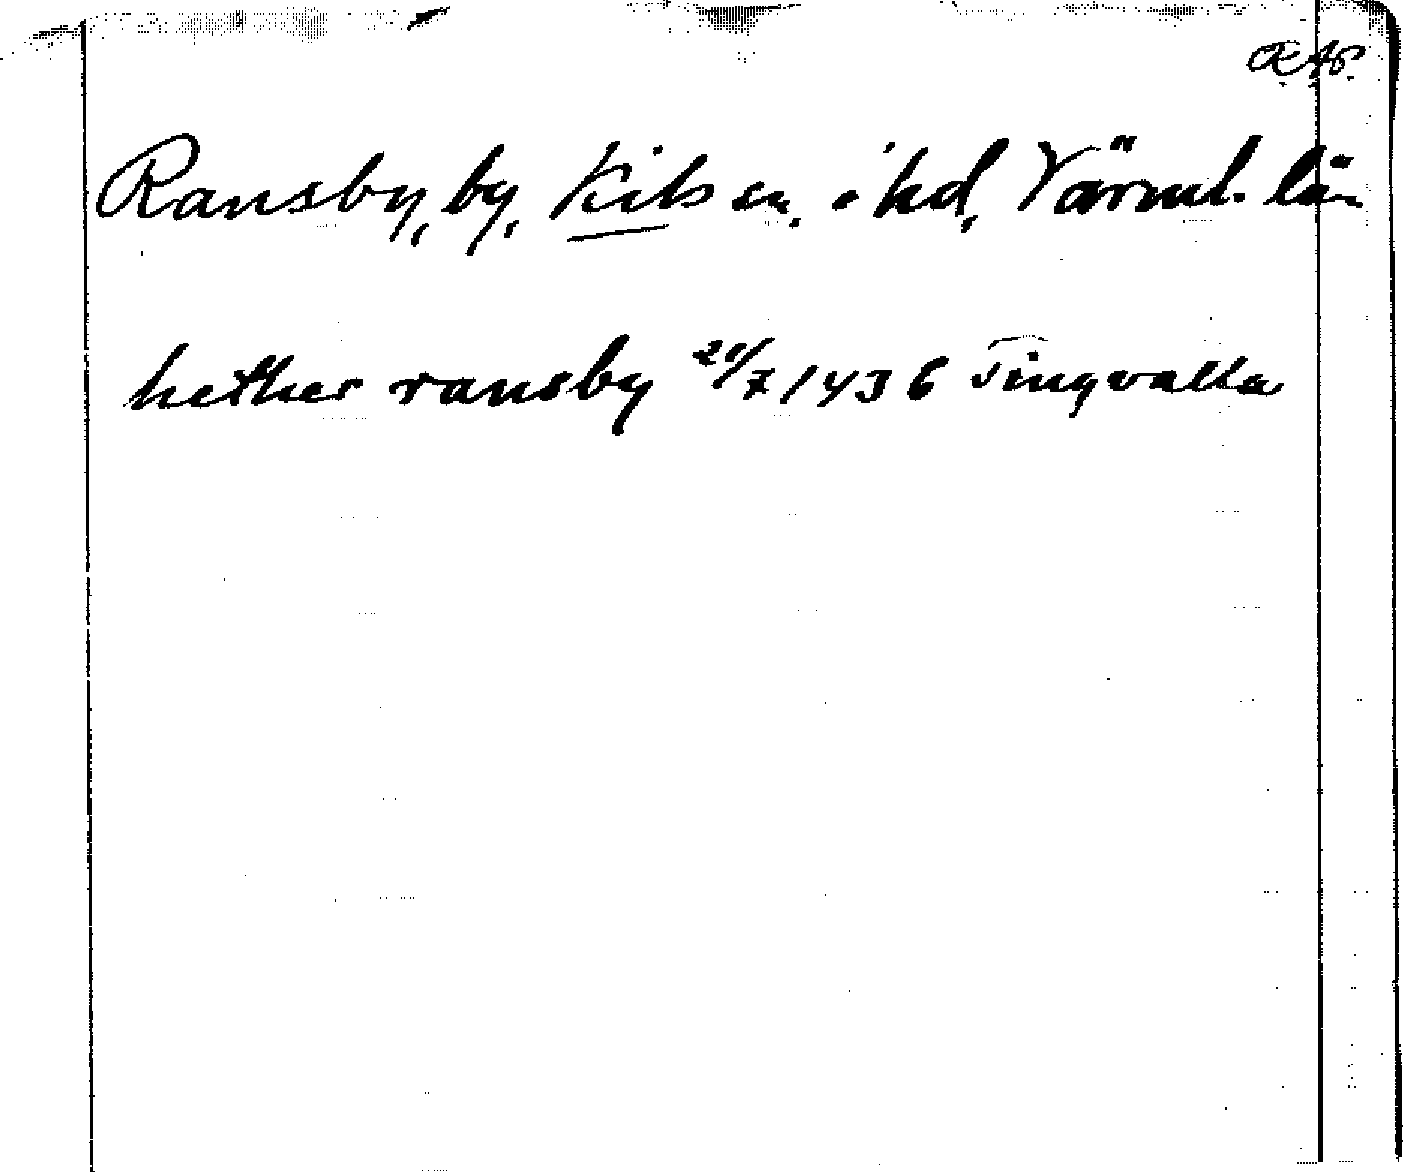 Ransby, by, Kils sn. o hd, Värml. län
hether ransby 21/7 1436 Tingvalla